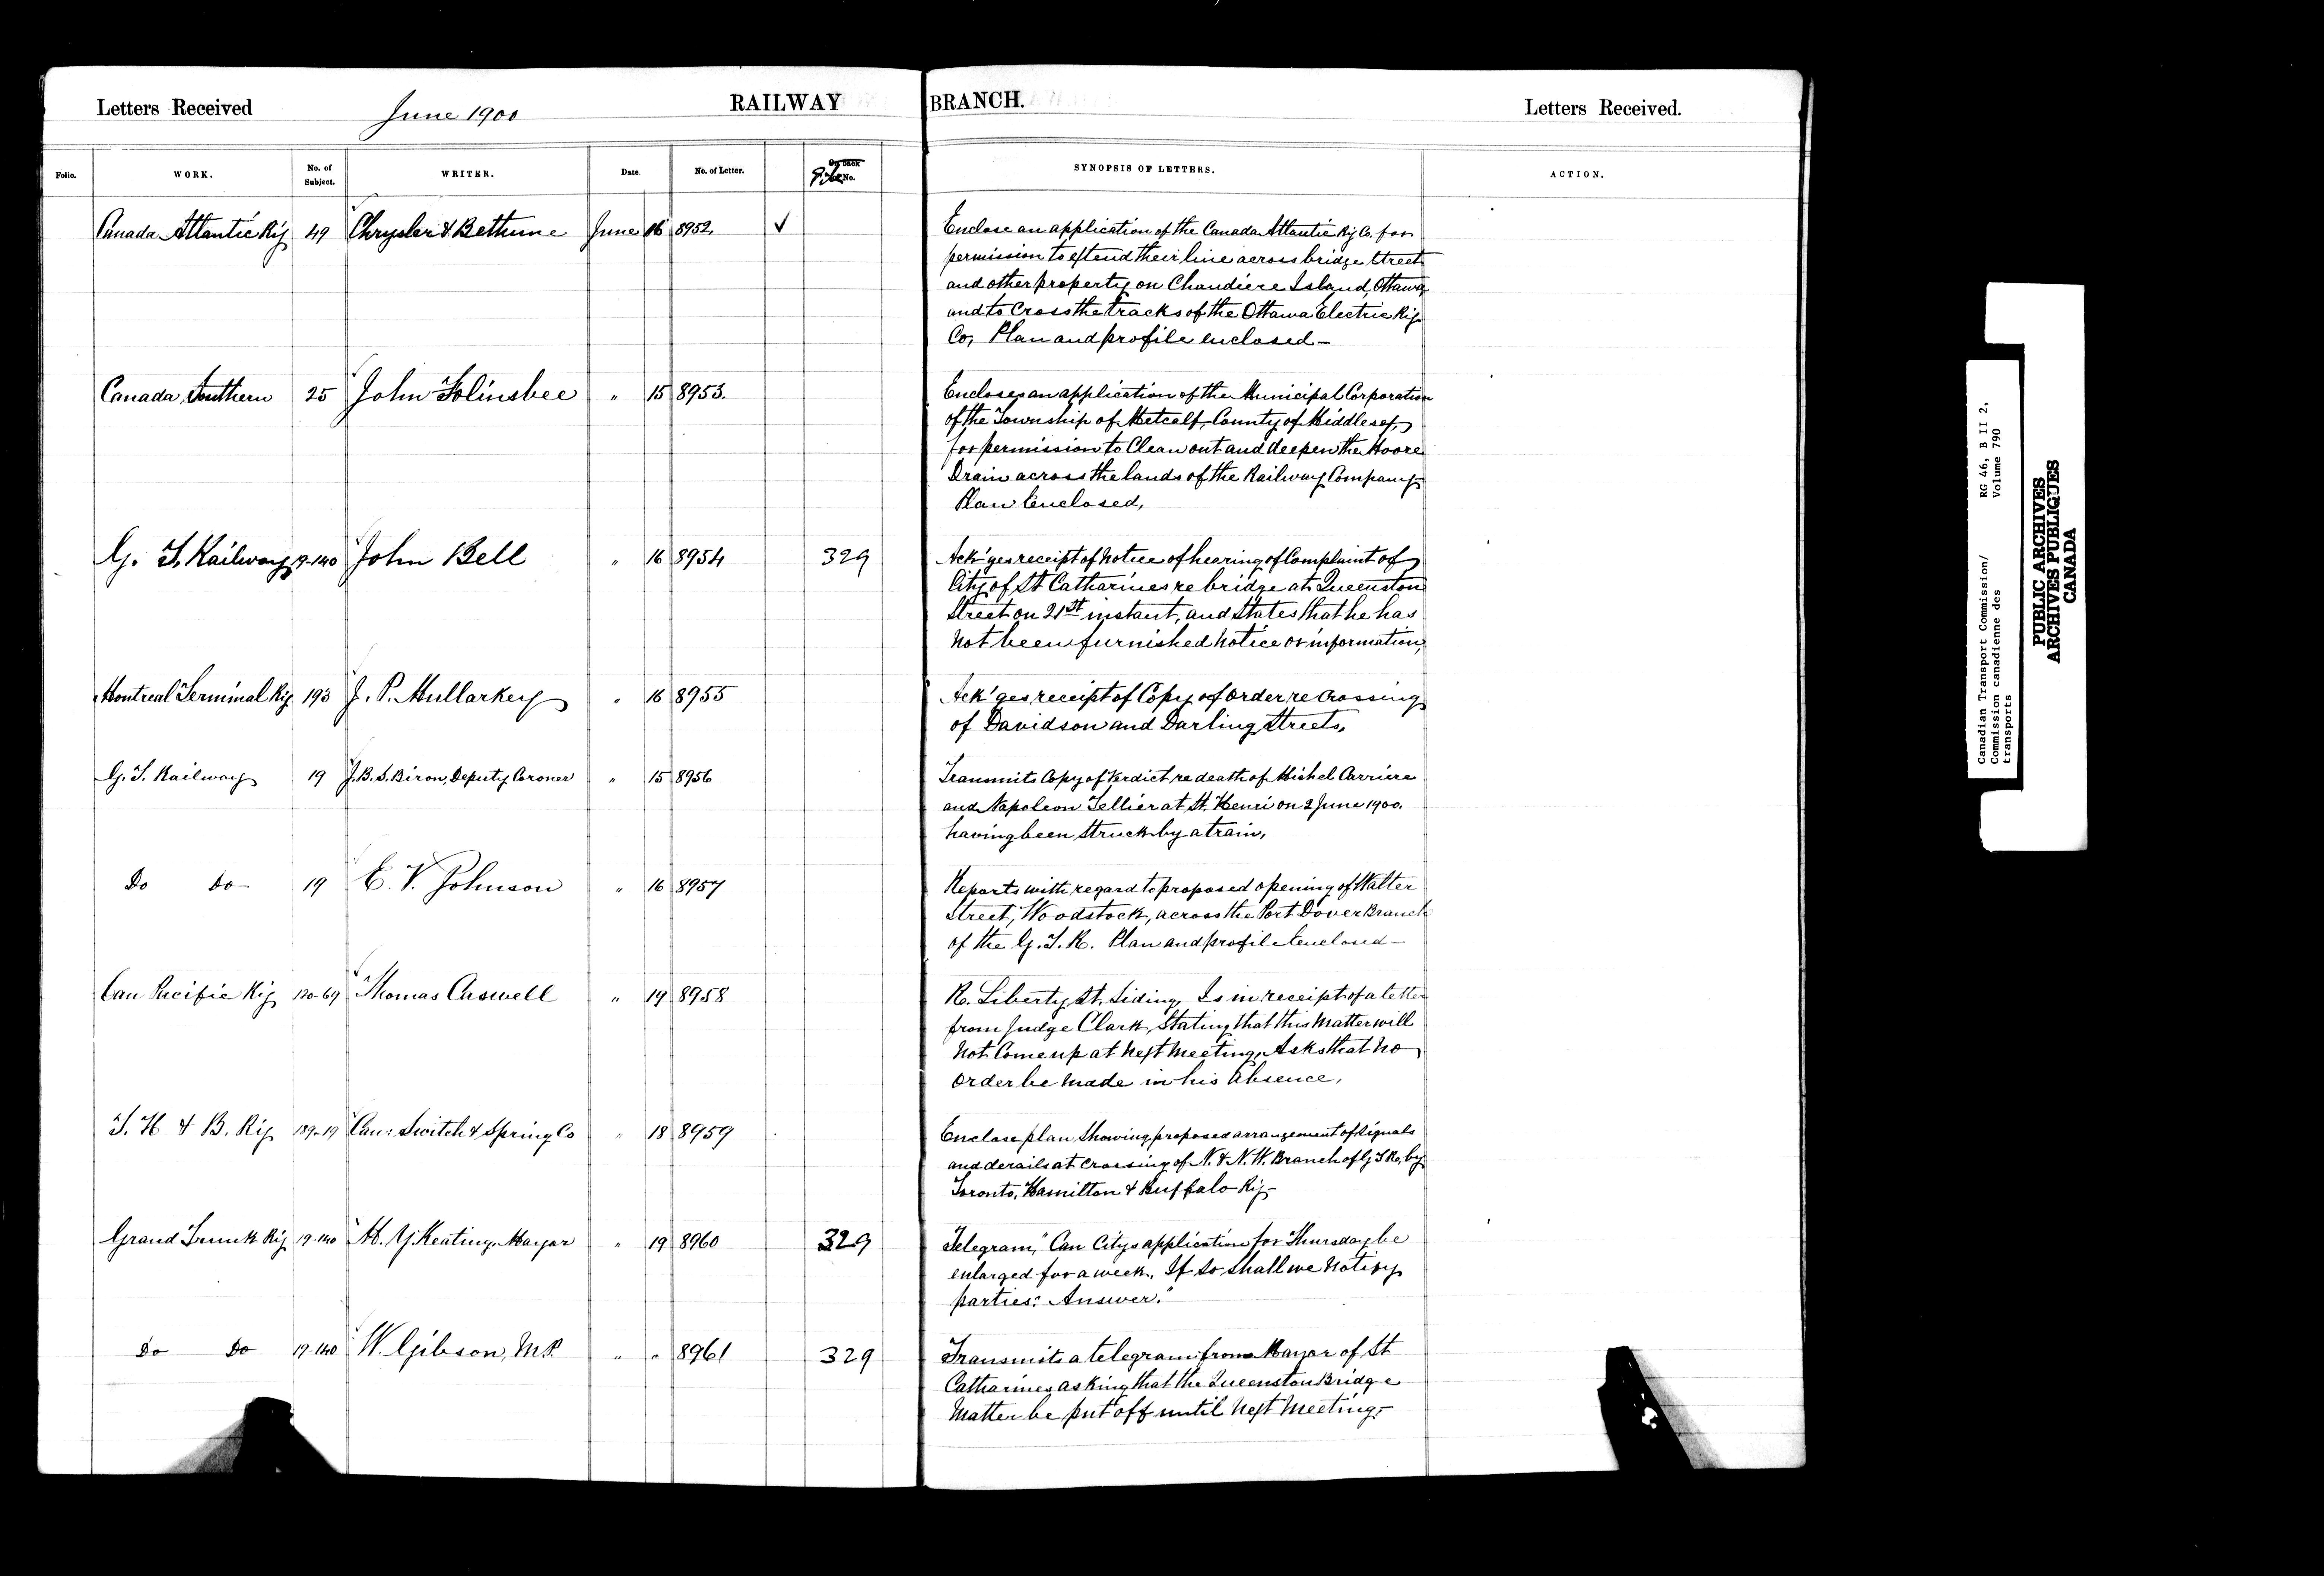 Letters Received June 1900 RAILWAY BRANCH. Letters Received.
Folio. WORK. No. of Subject. WRITER. Date. No. of Letter. File No. SYNOPSIS OF LETTERS. ACTION.
Canada Atlantic Ry 49 Chrysler & Bethune June 16 8952 ✓ Enclose an application of the Canada Atlantic Ry Co. for
permission to extend their line across bridge Street
and other property on Chaudiere Island, Ottawa
and to Cross the tracks of the Ottawa Electric Ry
Co, Plan and profile enclosed -
Canada Southern 25 John Folinsbee " 15 8953. Encloses an application of the Municipal Corporation
of the Township of Metcalf, County of Middlesex,
for permission to Clean out and deepen the Moore
Drain across the lands of the Railway Company
Plan Enclosed,
G. T. Railway 19-140 John Bell " 16 8954 329 Ack'ges receipt of notice of hearing of Complaint of
City of St Catharines re bridge at Queenston
Street on 21st instant, and states that he has
not been furnished notice or information,
Montreal Terminal Ry 193 J. P. Mullarkey " 16 8955 Ack'ges receipt of Copy of Order re Crossing
of Davidson and Darling Streets,
G. T. Railway 19 J. B. S. Biron, Deputy Coroner " 15 8956 Transmits Copy of Verdict re death of Michel Carriere
and Napoleon Tellier at St. Henri on 2 June 1900.
having been struck by a train,
Do Do 19 E. V. Johnson " 16 8957 Reports with regard to proposed opening of Walter
Street, Woodstock, across the Port Dover Branch
of the G. T. R. Plan and profile Enclosed -
Can Pacific Ry 120-69 Thomas Caswell " 19 8958 R. Liberty St. Siding, Is in receipt of a letter
from Judge Clark, Stating that this Matter will
not Come up at next Meeting, Asks that no
order be made in his absence,
T. H & B. Ry 189-19 Can: Switch & Spring Co " 18 8959 Enclose plan showing proposed arrangement of signals
and derails at crossing of N. & N. W. Branch of G T R, by
Toronto, Hamilton & Buffalo Ry -
Grand Trunk Ry 19-140 M. Y. Keating, Mayor " 19 8960 329 Telegram, "Can Citys application for Thursday be
enlarged for a week. If so shall we notify
parties: Answer."
Do Do 19-140 W. Gibson, M.P. " " 8961 329 Transmits a telegram from Mayor of St
Catharines asking that the Queenston Bridge
Matter be put off until next Meeting -
Canadian Transport Commission/ RG 46, B II 2,
Commission canadienne des Volume 790
transports
PUBLIC ARCHIVES
ARCHIVES PUBLIQUES
CANADA